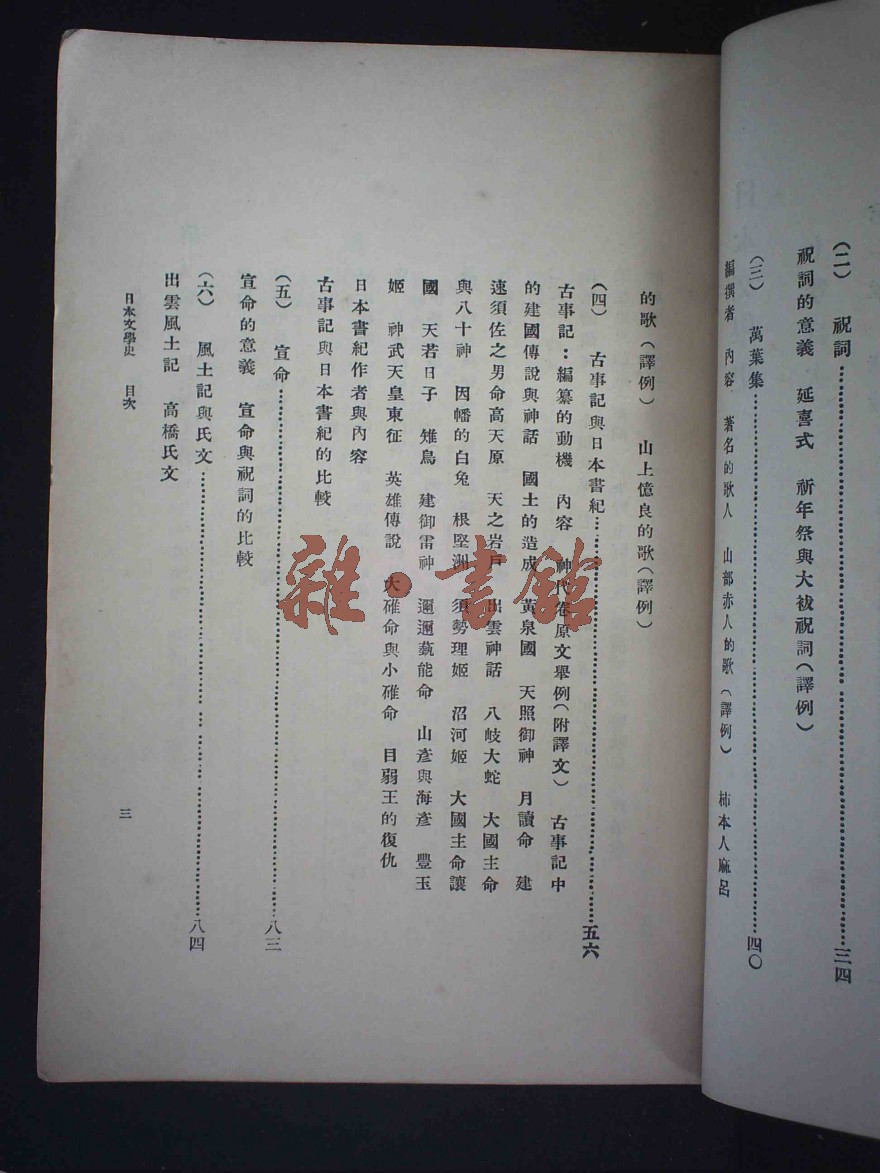 （二）　祝詞……三四
祝詞的意義　延喜式　祈年祭與大祓祝詞（譯例）
（三）　萬葉集……四〇
編撰者　內容　著名的歌人　山部赤人的歌（譯例）　柿本人麻呂
的歌（譯例）　山上憶良的歌（譯例）
（四）　古事記與日本書紀……五六
古事記：編纂的動機　內容　神代卷原文舉例（附譯文）　古事記中
的建國傳說與神話　國土的造成　黃泉國　天照御神　月讀命　建
速須佐之男命高天原　天之岩戶　出雲神話　八岐大蛇　大國主命
與八十神　因幡的白兔　根堅洲　須勢理姬　沼河姬　大國主命讓
國　天若日子　雉鳥　建御雷神　邇邇藝能命　山彥與海彥　豐玉
姬　神武天皇東征　英雄傳說　大碓命與小碓命　目弱王的復仇
日本書紀作者與內容
古事記與日本書紀的比較
（五）　宣命……八三
宣命的意義　宣命與祝詞的比較
（六）　風土記與氏文……八四
出雲風土記　高橋氏文
日本文學史　目次
三
雜·書館